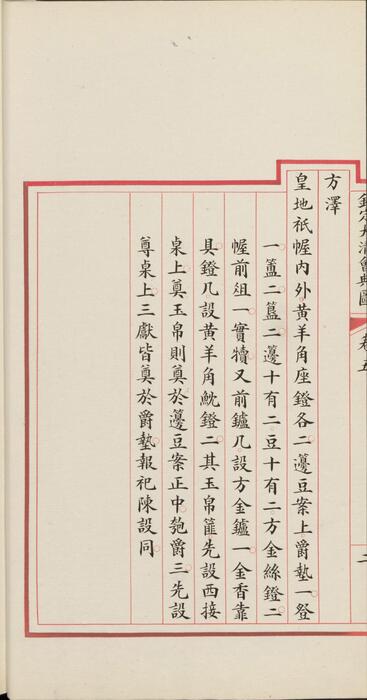 欽定大清會典圖 卷五 二
方澤
皇地祇幄内外黃羊角座鐙各二籩豆案上爵墊一登
一簠二簋二籩十有二豆十有二方金絲鐙二
幄前俎一實犢又前鑪几設方金鑪一金香靠
具鐙几設黃羊角魫鐙二其玉帛篚先設西接
桌上奠玉帛則奠於籩豆案正中匏爵三先設
尊桌上三獻皆奠於爵墊報祀陳設同